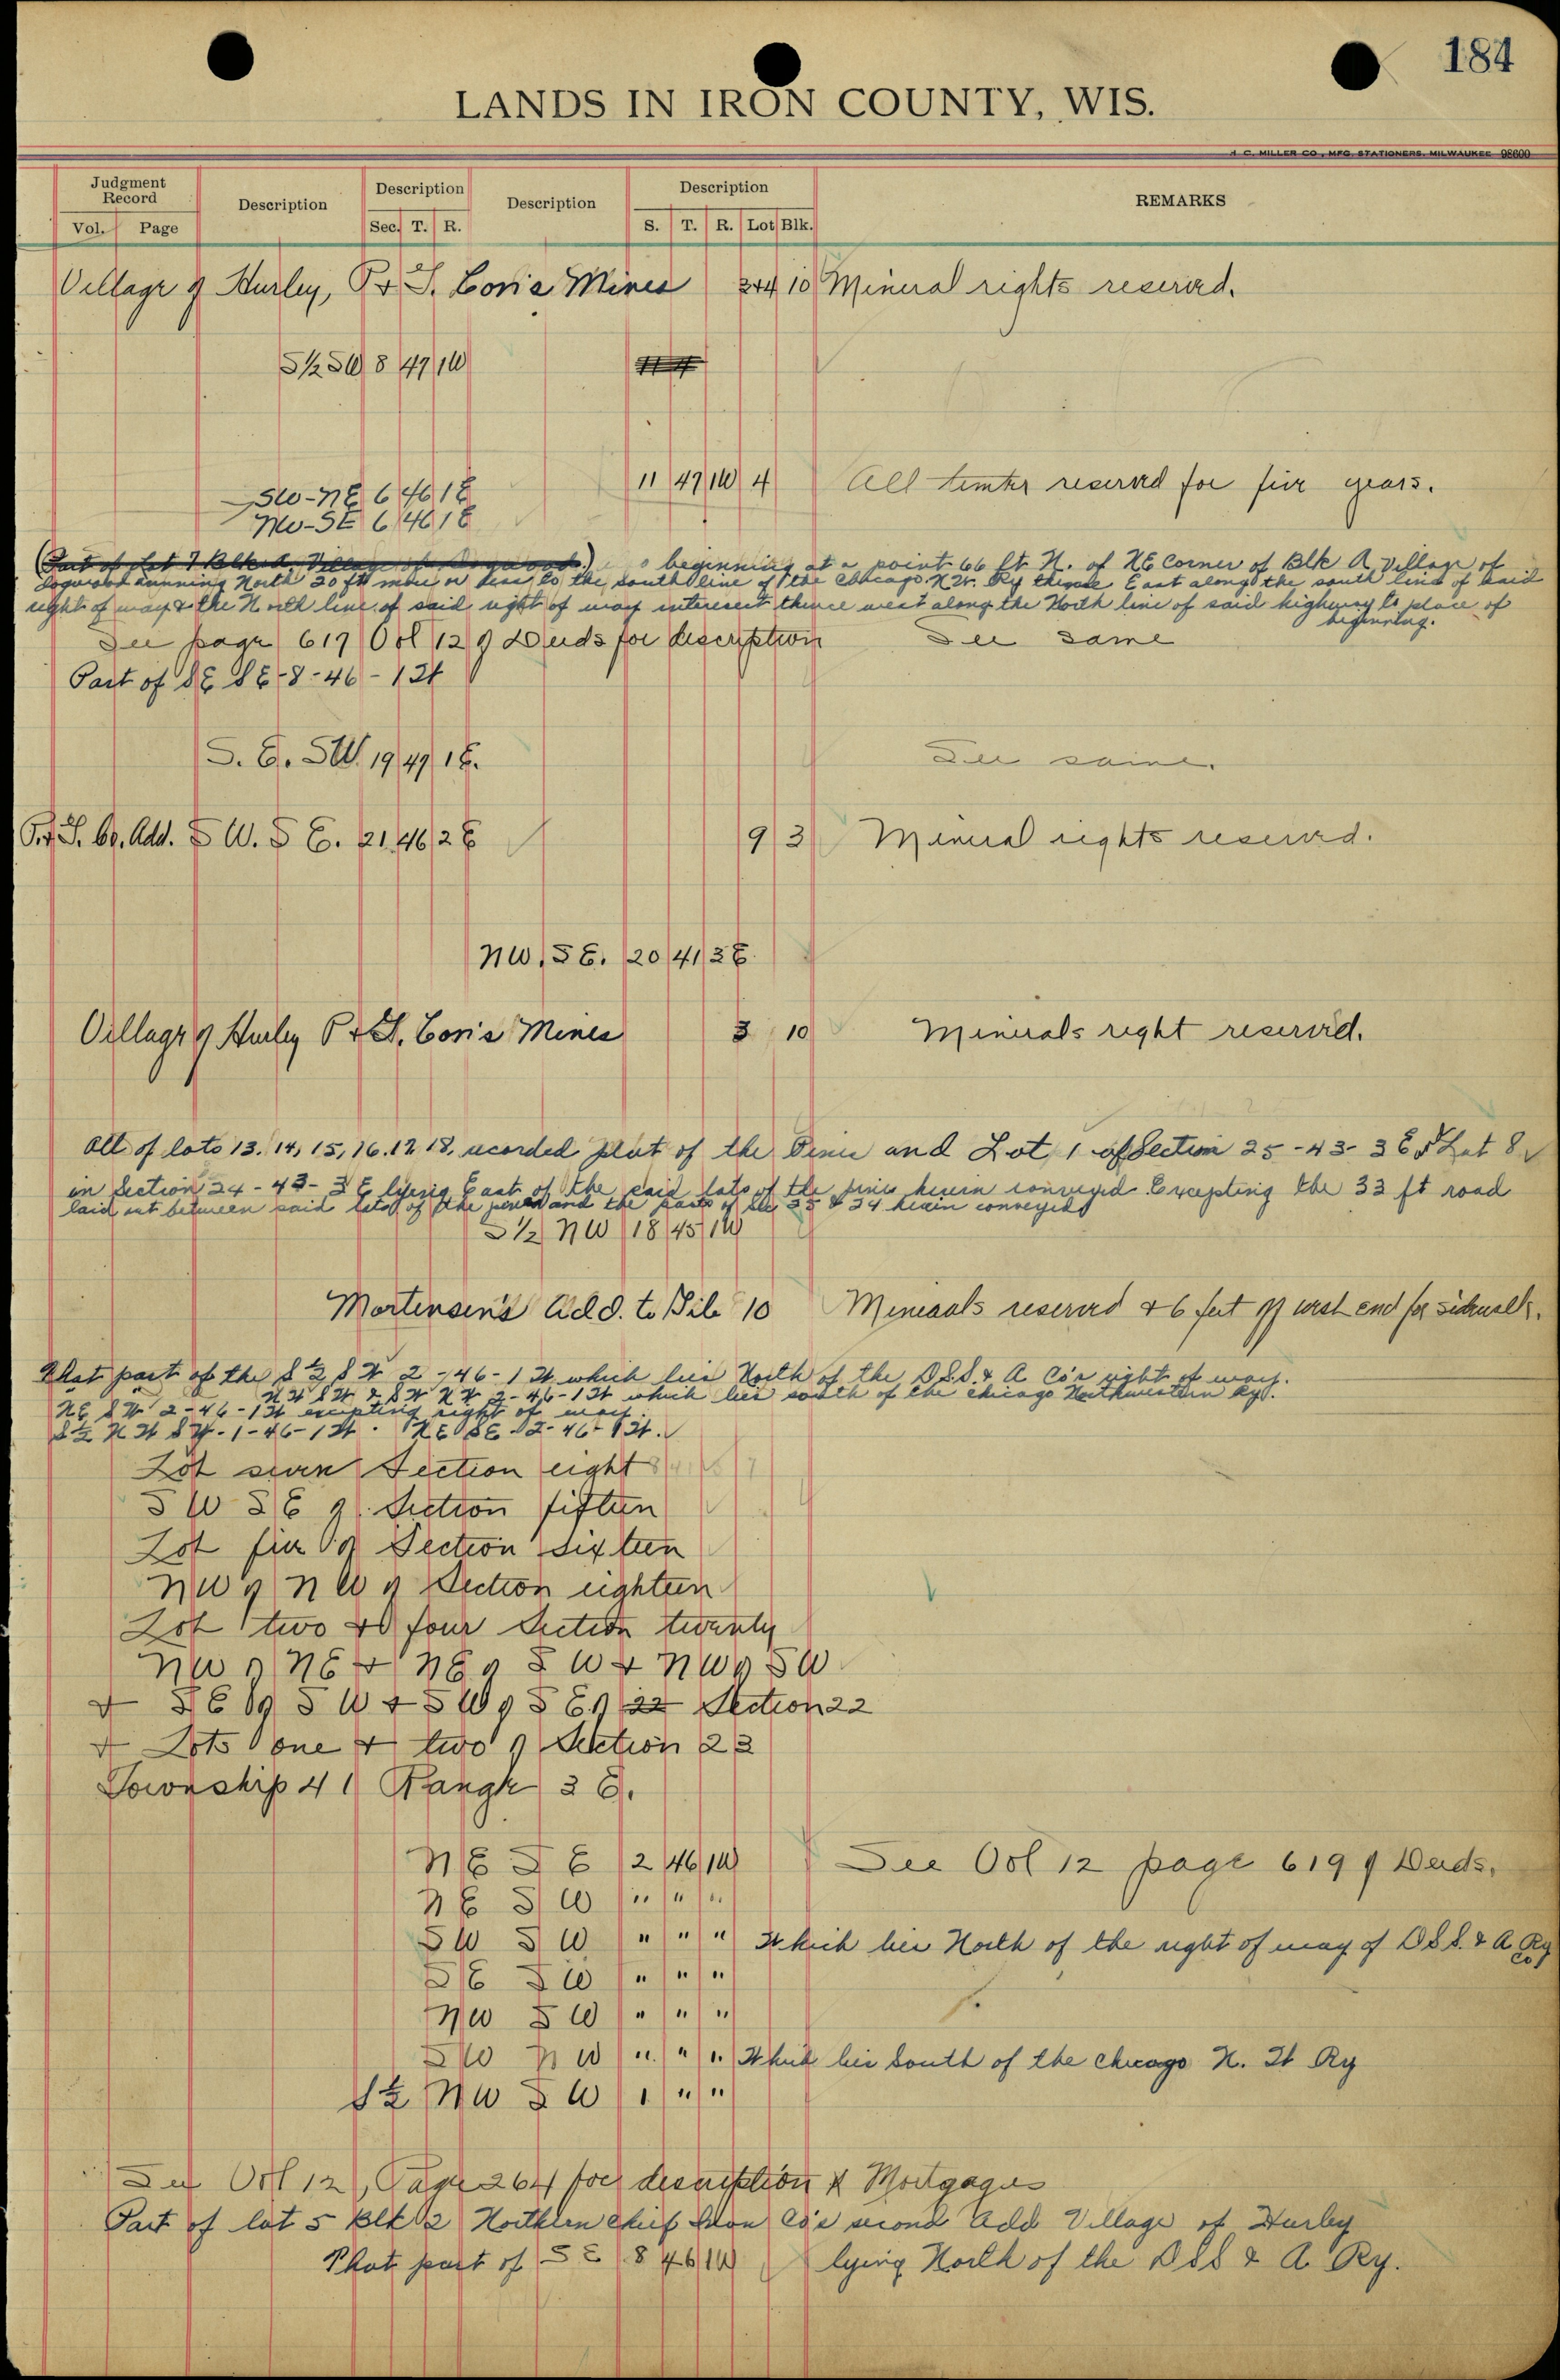 184
LANDS IN IRON COUNTY, WIS.
H. C. MILLER CO., MFG. STATIONERS, MILWAUKEE 98600
Judgment Record Description Description Description Description REMARKS
Vol. Page Sec. T. R. S. T. R. Lot Blk.
Village of Hurley, P & L. Co's Mines 3+4 10 Mineral rights reserved.
S½ SW 8 47 1W
11 47 1W 4 All timber reserved for five years.
SW-NE 6 46 1E
NW-SE 6 46 1E
(Part of Lot 7 Blk A, Village of Dogwood.) beginning at a point 66 ft. N. of NE Corner of Blk A Village of
Dogwood running North 20 ft more or less to the south line of the Chicago N.W. Ry thence East along the south line of said
right of way & the North line of said right of way intersect thence west along the North line of said highway to place of
beginning.
See page 617 Vol 12 of Deeds for description See same
Part of SE SE-8-46-1W
S. E. SW. 19 47 1E. See same.
Co. Add. S W. S E. 21 46 2E 9 3 Mineral rights reserved.
NW. SE. 20 41 3E.
Village of Hurley Co's Mines 3 10 Minerals right reserved.
All of lots 13. 14, 15, 16. 17 18, recorded plat of the Pines and Lot 1 of Section 25-43-3E & Lot 8
in Section 24-43-3E lying East of the said lots of the pines herein conveyed Excepting the 33 ft road
laid out between said lots of the pines and the parts of Sec 25 & 24 herein conveyed
S½ NW 18 45 1W
Mortensen's Add. to Gile 10 Minerals reserved & 6 feet off west end for sidewalk.
That part of the S½ SW 2-46-1W which lies North of the D.S.S. & A Co's right of way.
NW SW & SW NW 2-46-1W which lies south of the Chicago Northwestern Ry.
NE SW 2-46-1W excepting right of way.
S½ NW SW-1-46-1W. NE SE 2-46-1W.
Lot seven Section eight
SW SE of Section fifteen
Lot five of Section sixteen
NW of NW of Section eighteen
Lot two & four Section twenty
NW of NE + NE of SW + NW of SW
+ SE of SW + SW of SE of 22 Section 22
+ Lots one + two of Section 23
Township 41 Range 3 E.
NE SE 2 46 1W See Vol 12 page 619 of Deeds.
NE SW " " "
SW SW " " " Which lies North of the right of way of D S S. & A Ry Co
SE SW " " "
NW SW " " "
SW NW " " " Which lies South of the Chicago N. W Ry
S½ NW SW 1 " "
See Vol 12, Page 264 for description of Mortgages
Part of lot 5 Blk 2 Northern Chief Iron Co's second Add Village of Hurley
That part of SE 8 46 1W lying North of the D S S & A Ry.